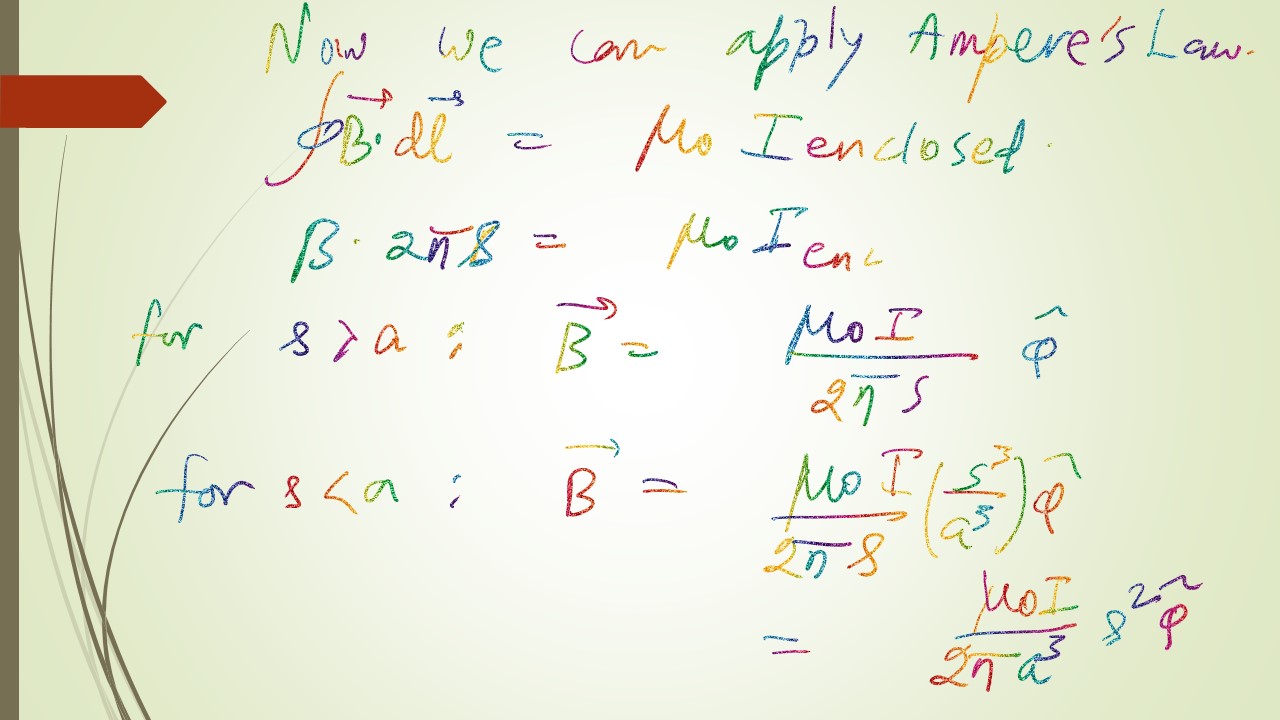 Now we can apply Ampere's Law.
∮B⃗·dl⃗ = μ₀ I enclosed.
B · 2πs = μ₀ I enc
for s > a : B⃗ = μ₀I / 2πs φ̂
for s < a : B⃗ = μ₀I / 2πs (s³/a³) φ̂
= μ₀I / 2πa³ s² φ̂